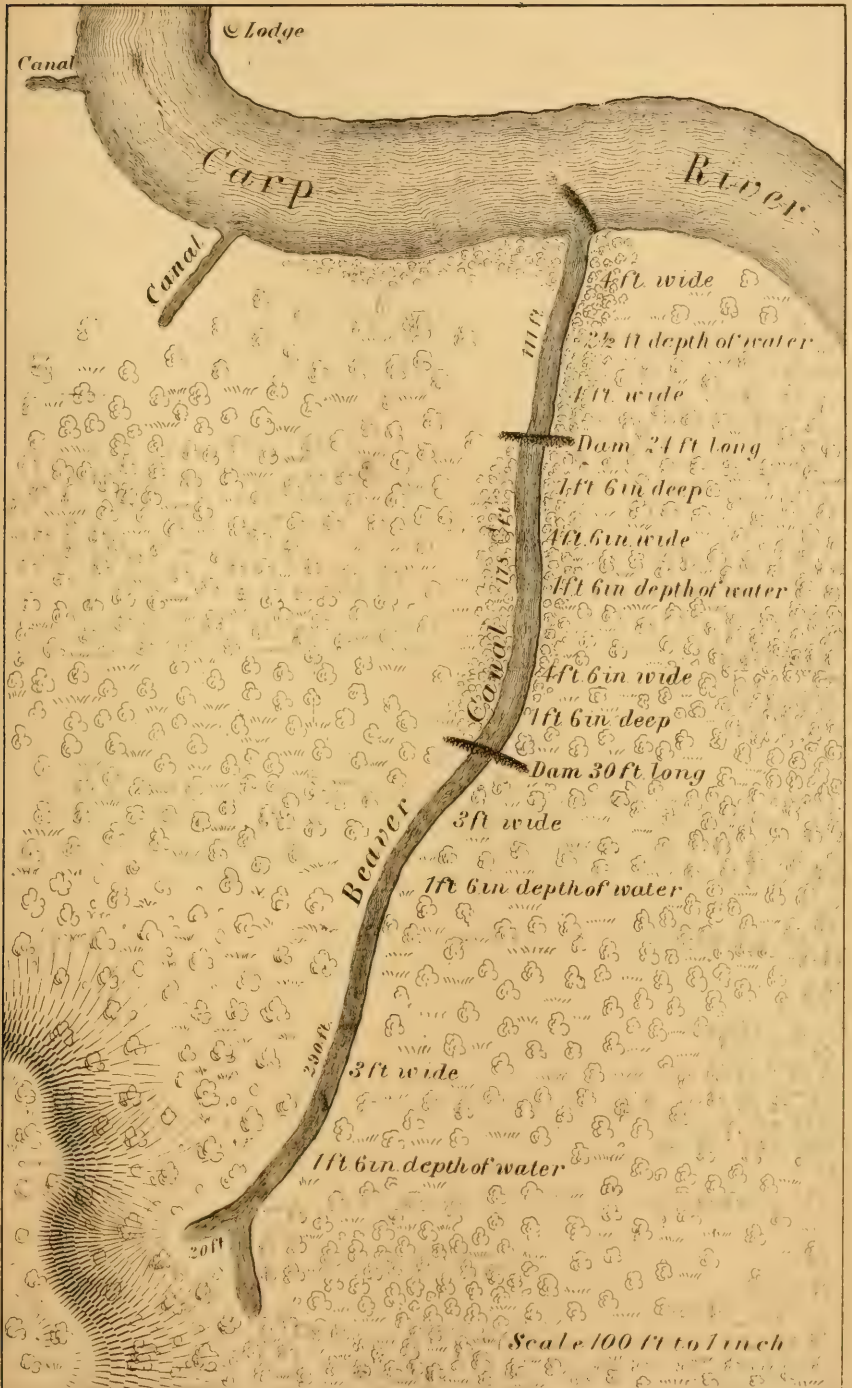 Lodge
Canal
Carp River
Canal
4 ft. wide
111 ft
2½ ft depth of water
4 ft. wide
Dam 24 ft long
1 ft 6 in deep
4 ft. 6 in wide
178 ft
1 ft 6 in depth of water
4 ft. 6 in wide
1 ft 6 in deep
Dam 30 ft long
Beaver Canal
3 ft wide
1 ft 6 in depth of water
290 ft.
3 ft wide
1 ft 6 in. depth of water
20 ft
Scale 100 ft to 1 inch